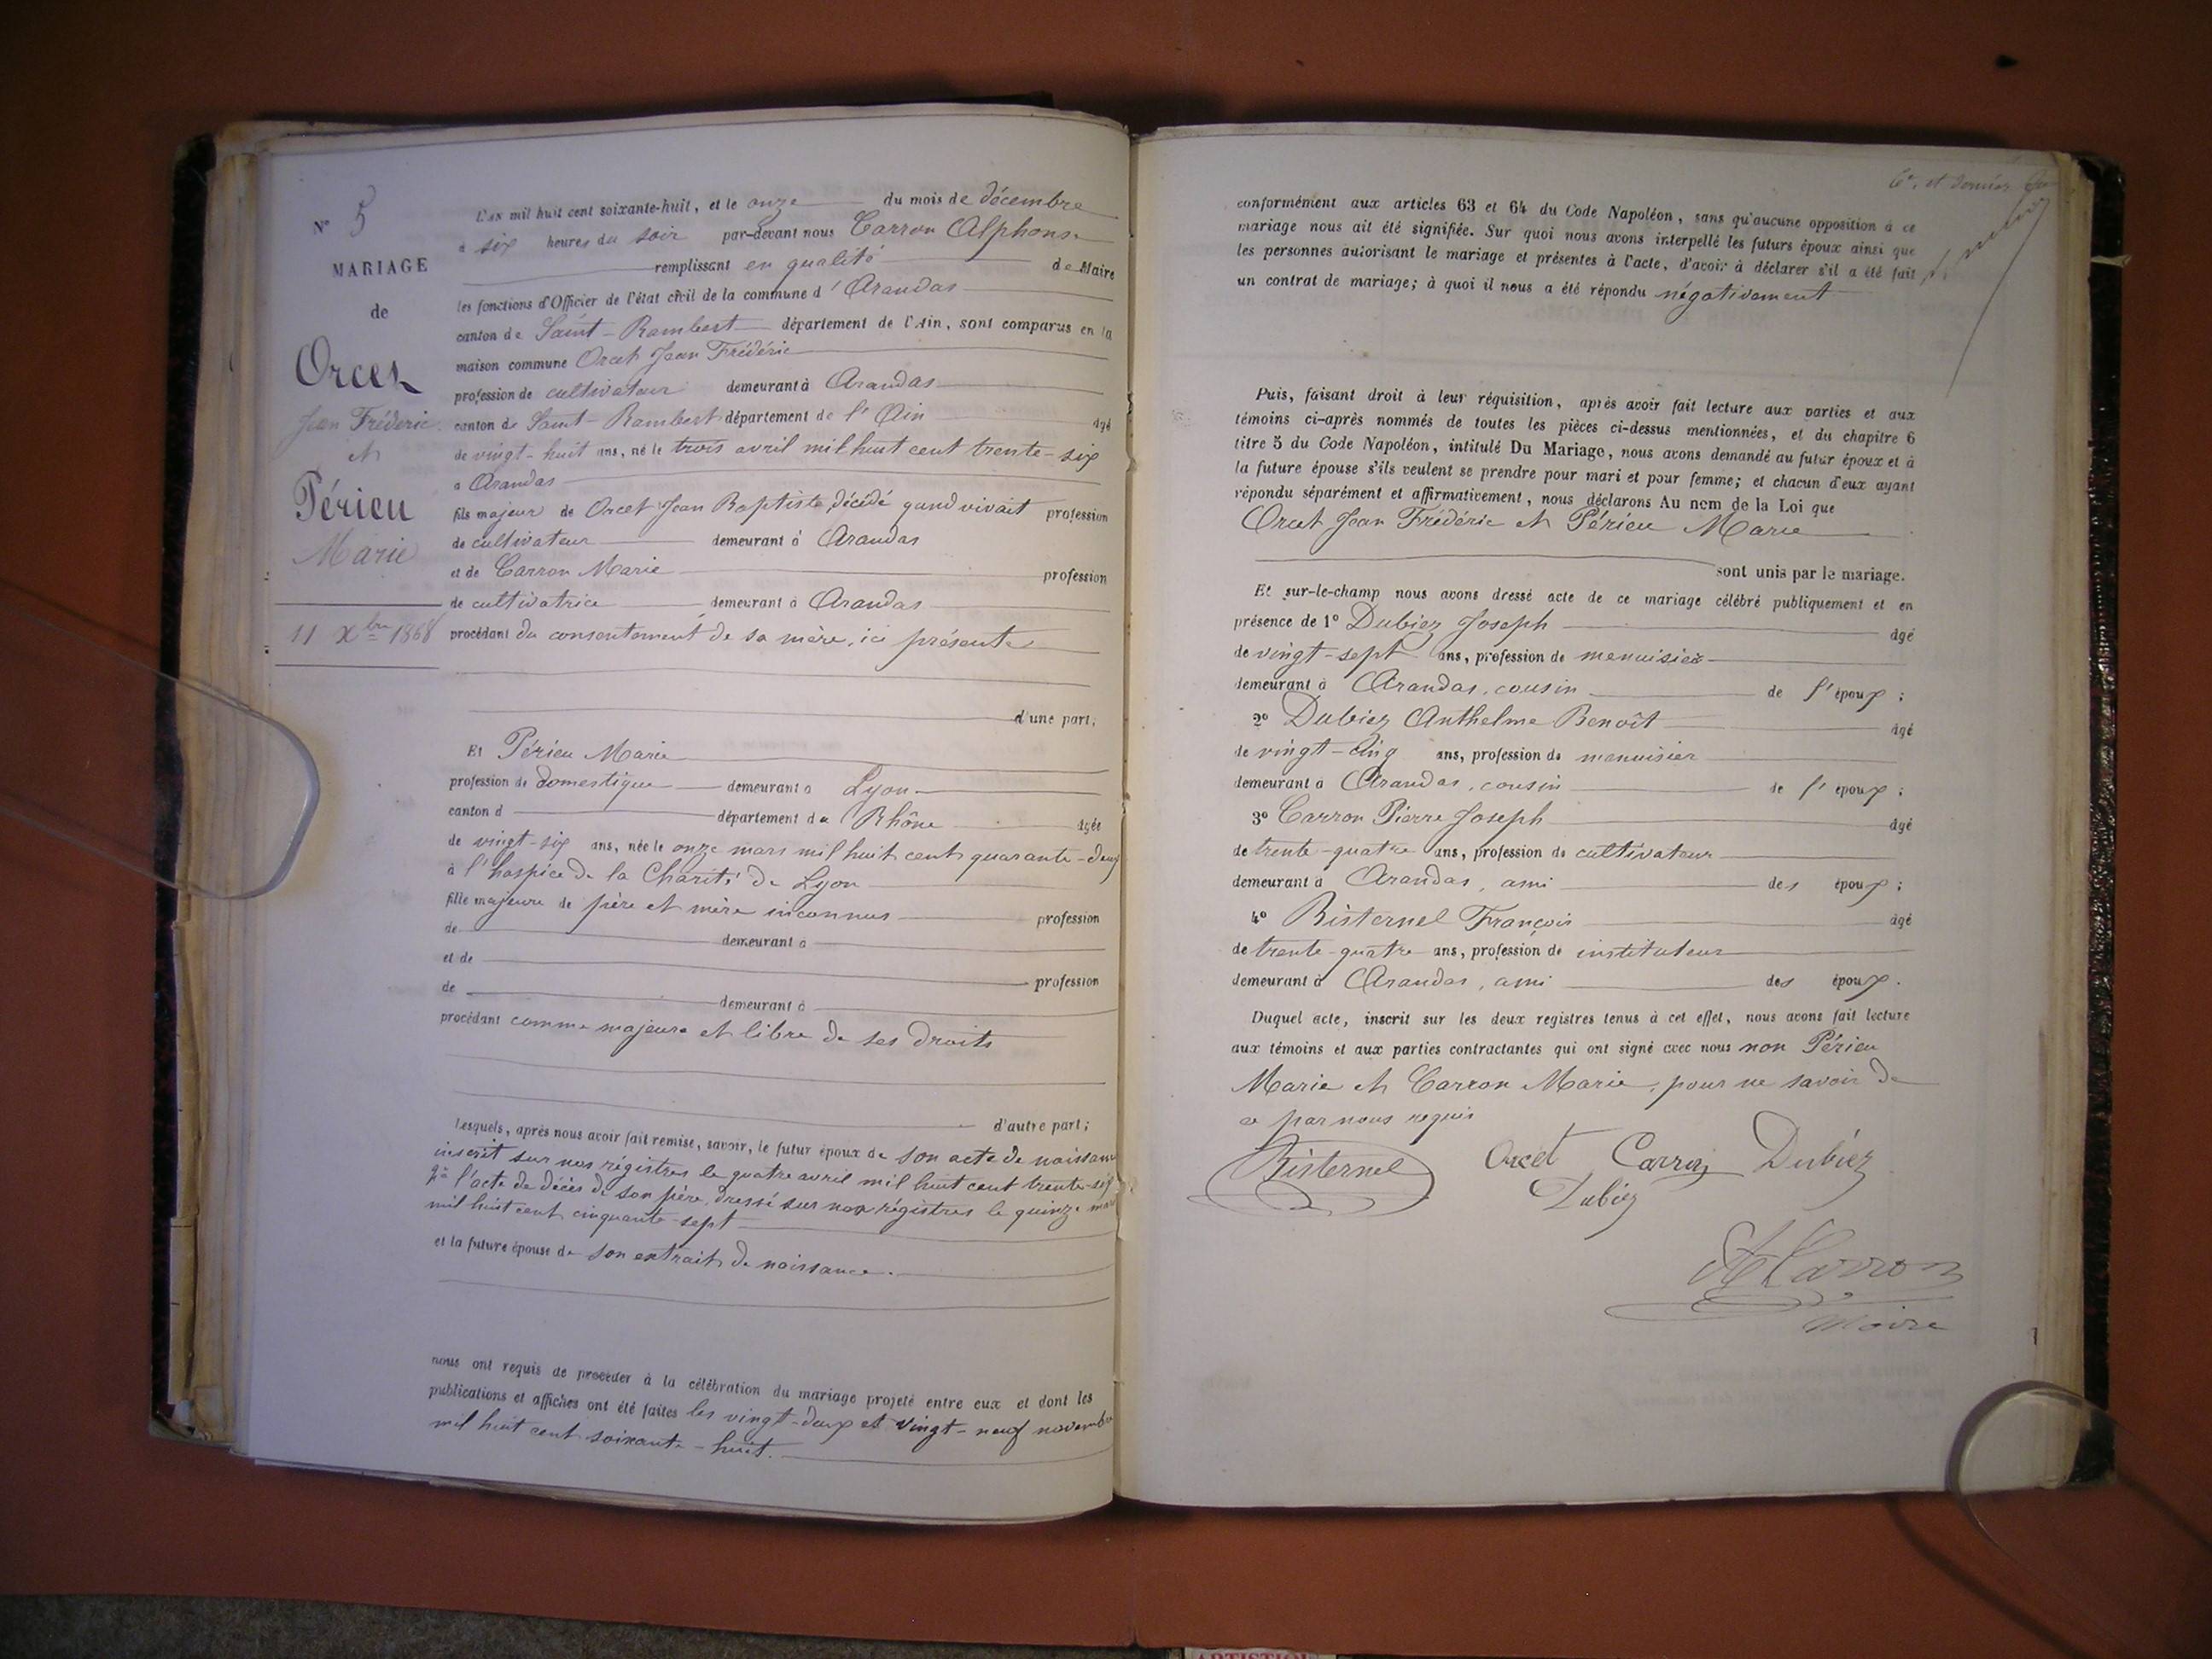 N° 5
MARIAGE
de
Orcet
Jean Fréderic
et
Périeu
Marie
11 Xbre 1868
L'an mil huit cent soixante-huit, et le onze du mois de décembre
à six heures du soir par-devant nous Carron Alphonse
remplissant en qualité de Maire
les fonctions d'Officier de l'état civil de la commune d'Arandas
canton de Saint-Rambert département de l'Ain, sont comparus en la
maison commune Orcet Jean Frédéric
profession de cultivateur demeurant à Arandas
canton de Saint-Rambert département de l'Ain âgé
de vingt-huit ans, né le trois avril mil huit cent trente-six
à Arandas
fils majeur de Orcet Jean Baptiste décédé quand vivait profession
de cultivateur demeurant à Arandas
et de Carron Marie profession
de cultivatrice demeurant à Arandas
procédant du consentement de sa mère, ici présente
d'une part;
Et Périeu Marie
profession de domestique demeurant à Lyon
canton d département du Rhône âgée
de vingt-six ans, née le onze mars mil huit cent quarante-deux
à l'hospice de la Charité de Lyon
fille majeure de père et mère inconnus profession
de demeurant à
et de profession
de demeurant à
procédant comme majeure et libre de ses droits
d'autre part;
Lesquels, après nous avoir fait remise, savoir, le futur époux de son acte de naissance
inscrit sur nos régistres le quatre avril mil huit cent trente-six
2° l'acte de décès de son père, dressé sur nos régistres le quinze mai
mil huit cent cinquante-sept
et la future épouse de son extrait de naissance.
nous ont requis de procéder à la célébration du mariage projeté entre eux et dont les
publications et affiches ont été faites les vingt-deux et vingt-neuf novembre
mil huit cent soixante-huit.
6e et dernier
conformément aux articles 63 et 64 du Code Napoléon, sans qu'aucune opposition à ce
mariage nous ait été signifiée. Sur quoi nous avons interpellé les futurs époux ainsi que
les personnes autorisant le mariage et présentes à l'acte, d'avoir à déclarer s'il a été fait
un contrat de mariage; à quoi il nous a été répondu négativement
Puis, faisant droit à leur réquisition, après avoir fait lecture aux parties et aux
témoins ci-après nommés de toutes les pièces ci-dessus mentionnées, et du chapitre 6
titre 5 du Code Napoléon, intitulé Du Mariage, nous avons demandé au futur époux et à
la future épouse s'ils veulent se prendre pour mari et pour femme; et chacun d'eux ayant
répondu séparément et affirmativement, nous déclarons Au nom de la Loi que
Orcet Jean Frédéric et Périeu Marie
sont unis par le mariage.
Et sur-le-champ nous avons dressé acte de ce mariage célébré publiquement et en
présence de 1° Dubiez Joseph âgé
de vingt-sept ans, profession de menuisier
demeurant à Arandas, cousin de l'époux;
2° Dubiez Anthelme Benoît âgé
de vingt-cinq ans, profession de menuisier
demeurant à Arandas, cousin de l'époux;
3° Carron Pierre Joseph âgé
de trente-quatre ans, profession de cultivateur
demeurant à Arandas, ami des époux;
4° Risternel François âgé
de trente-quatre ans, profession de instituteur
demeurant à Arandas, ami des époux.
Duquel acte, inscrit sur les deux registres tenus à cet effet, nous avons fait lecture
aux témoins et aux parties contractantes qui ont signé avec nous non Périeu
Marie et Carron Marie, pour ne savoir de
ce par nous requis
Risternel Orcet Carron Dubiez
Dubiez
A Carron
Maire